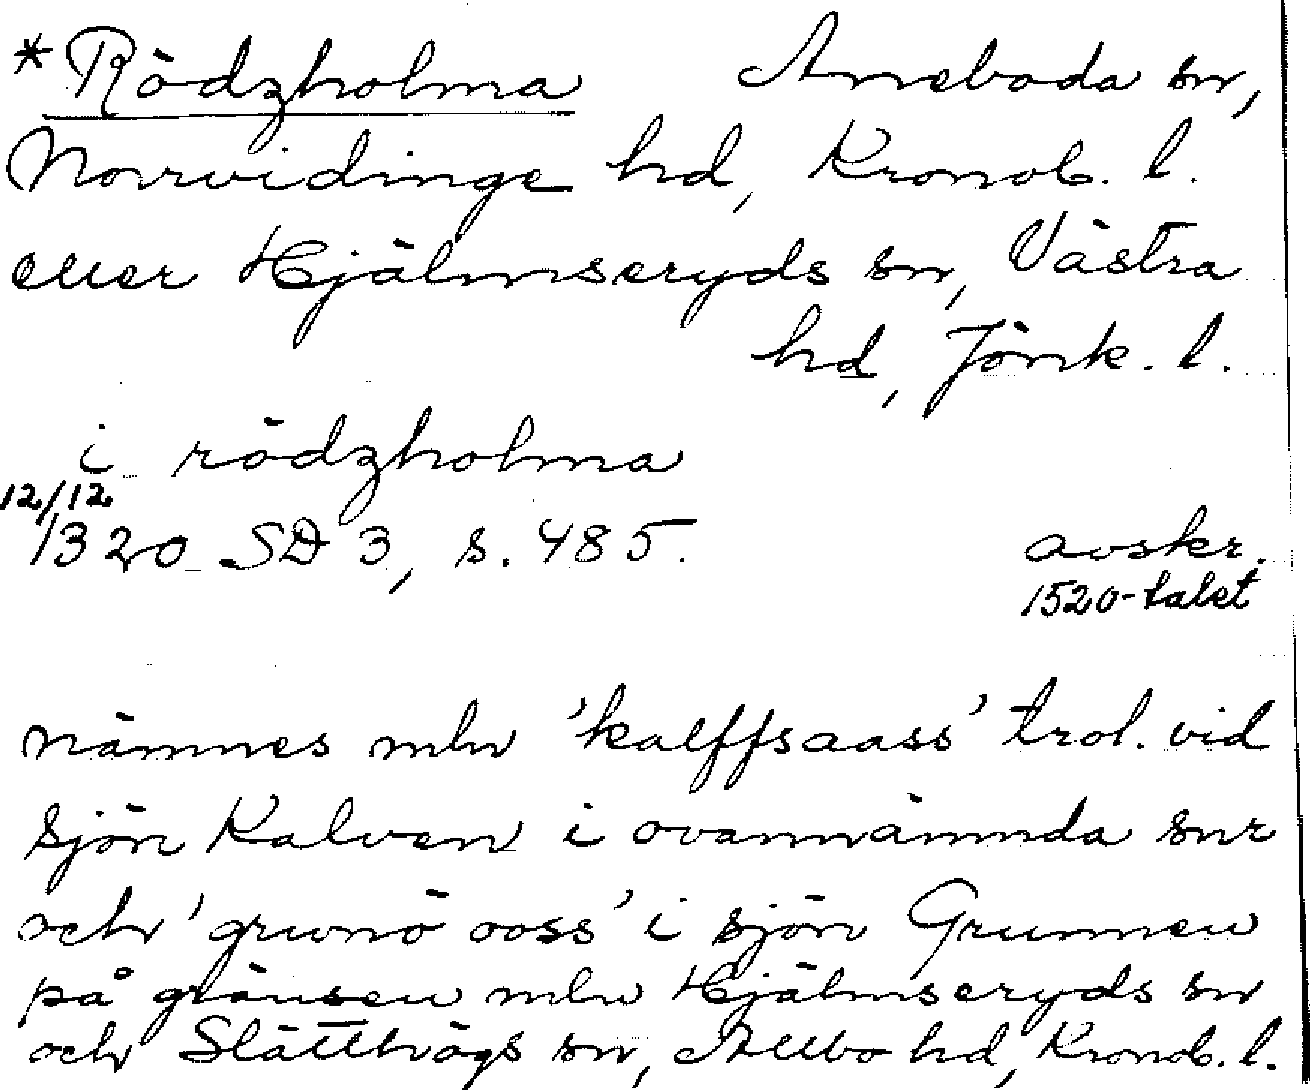 *Rödzholma Aneboda sn,
Norrvidinge hd, Kronob. l.
eller Hjälmseryds sn, Västra
hd, Jönk. l.
i rödzholma
12/12
1320 SD 3, s. 485. avskr.
1520-talet
nämnes mln 'kalffsaass' trol. vid
sjön Kalven i ovannämnda snr
och 'grwnö ooss' i sjön Grunnen
på gränsen mln Hjälmseryds sn
och Slätthögs sn, Allbo hd, Kronob. l.